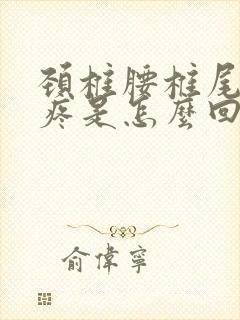 頸椎腰椎尾
疼是怎麼回
俞偉寧